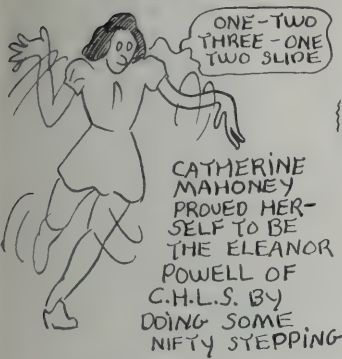 ONE-TWO
THREE-ONE
TWO SLIDE
CATHERINE
MAHONEY
PROVED HER-
SELF TO BE
THE ELEANOR
POWELL OF
C.H.L.S. BY
DOING SOME
NIFTY STEPPING